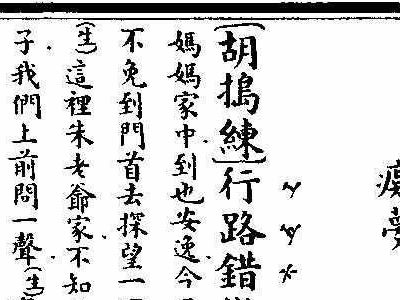 癡夢
(胡搗練)行路錯
媽媽家中到也安逸今
不免到門首去探望一
(生)這裡朱老爺家不知
子我們上前問一聲(生)